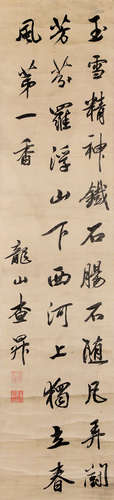 玉雪精神鐵石腸不随凡卉鬪
芳芬羅浮山下西河上獨立春
風第一香
龍山查昇